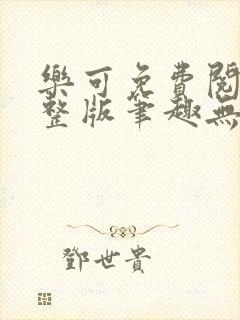 樂可免費閱
整版筆趣無
鄧世貴